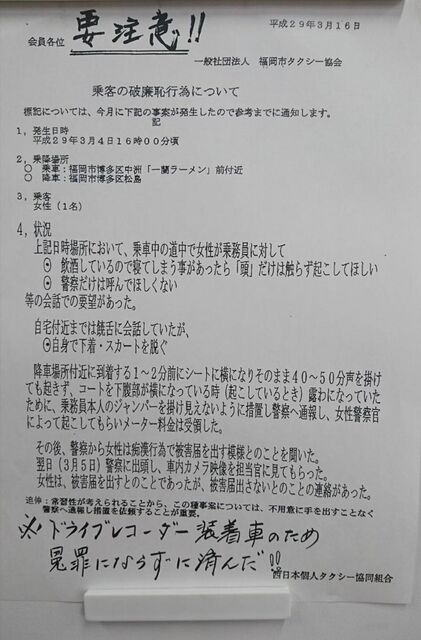 要注意!!
平成29年3月16日
会員各位
一般社団法人 福岡市タクシー協会
乗客の破廉恥行為について
標記については、今月に下記の事案が発生したので参考までに通知します。
記
1, 発生日時
平成29年3月4日16時00分頃
2, 乗降場所
○ 乗車:福岡市博多区中洲「一蘭ラーメン」前付近
○ 降車:福岡市博多区松島
3, 乗客
女性(1名)
4, 状況
上記日時場所において、乗車中の道中で女性が乗務員に対して
⊙ 飲酒しているので寝てしまう事があったら「頭」だけは触らず起こしてほしい
⊙ 警察だけは呼んでほしくない
等の会話での要望があった。
自宅付近までは饒舌に会話していたが、
⊙自身で下着・スカートを脱ぐ
降車場所付近に到着する1~2分前にシートに横になりそのまま40~50分声を掛け
ても起きず、コートを下腹部が横になっている時(起こしているとき)露わになっていた
ために、乗務員本人のジャンパーを掛け見えないように措置し警察へ通報し、女性警察官
によって起こしてもらいメーター料金は受領した。
その後、警察から女性は痴漢行為で被害届を出す模様とのことを聞いた。
翌日(3月5日)警察に出頭し、車内カメラ映像を担当官に見てもらった。
女性は、被害届を出すとのことであったが、被害届出さないとのことの連絡があった。
追伸:常習性が考えられることから、この種事案については、不用意に手を出すことなく
警察へ通報し措置を依頼することが重要。
※!ドライブレコーダー装着車のため
冤罪にならずに済んだ!!
西日本個人タクシー協同組合